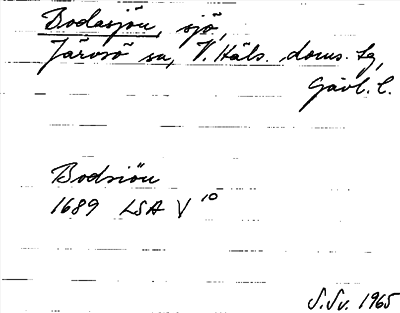 Bodasjön, sjö,
Järvsö sn, V. Häls. doms. lg,
Gävl. l.
Bodsiön
1689 LSA V 10
S.Sv. 1965